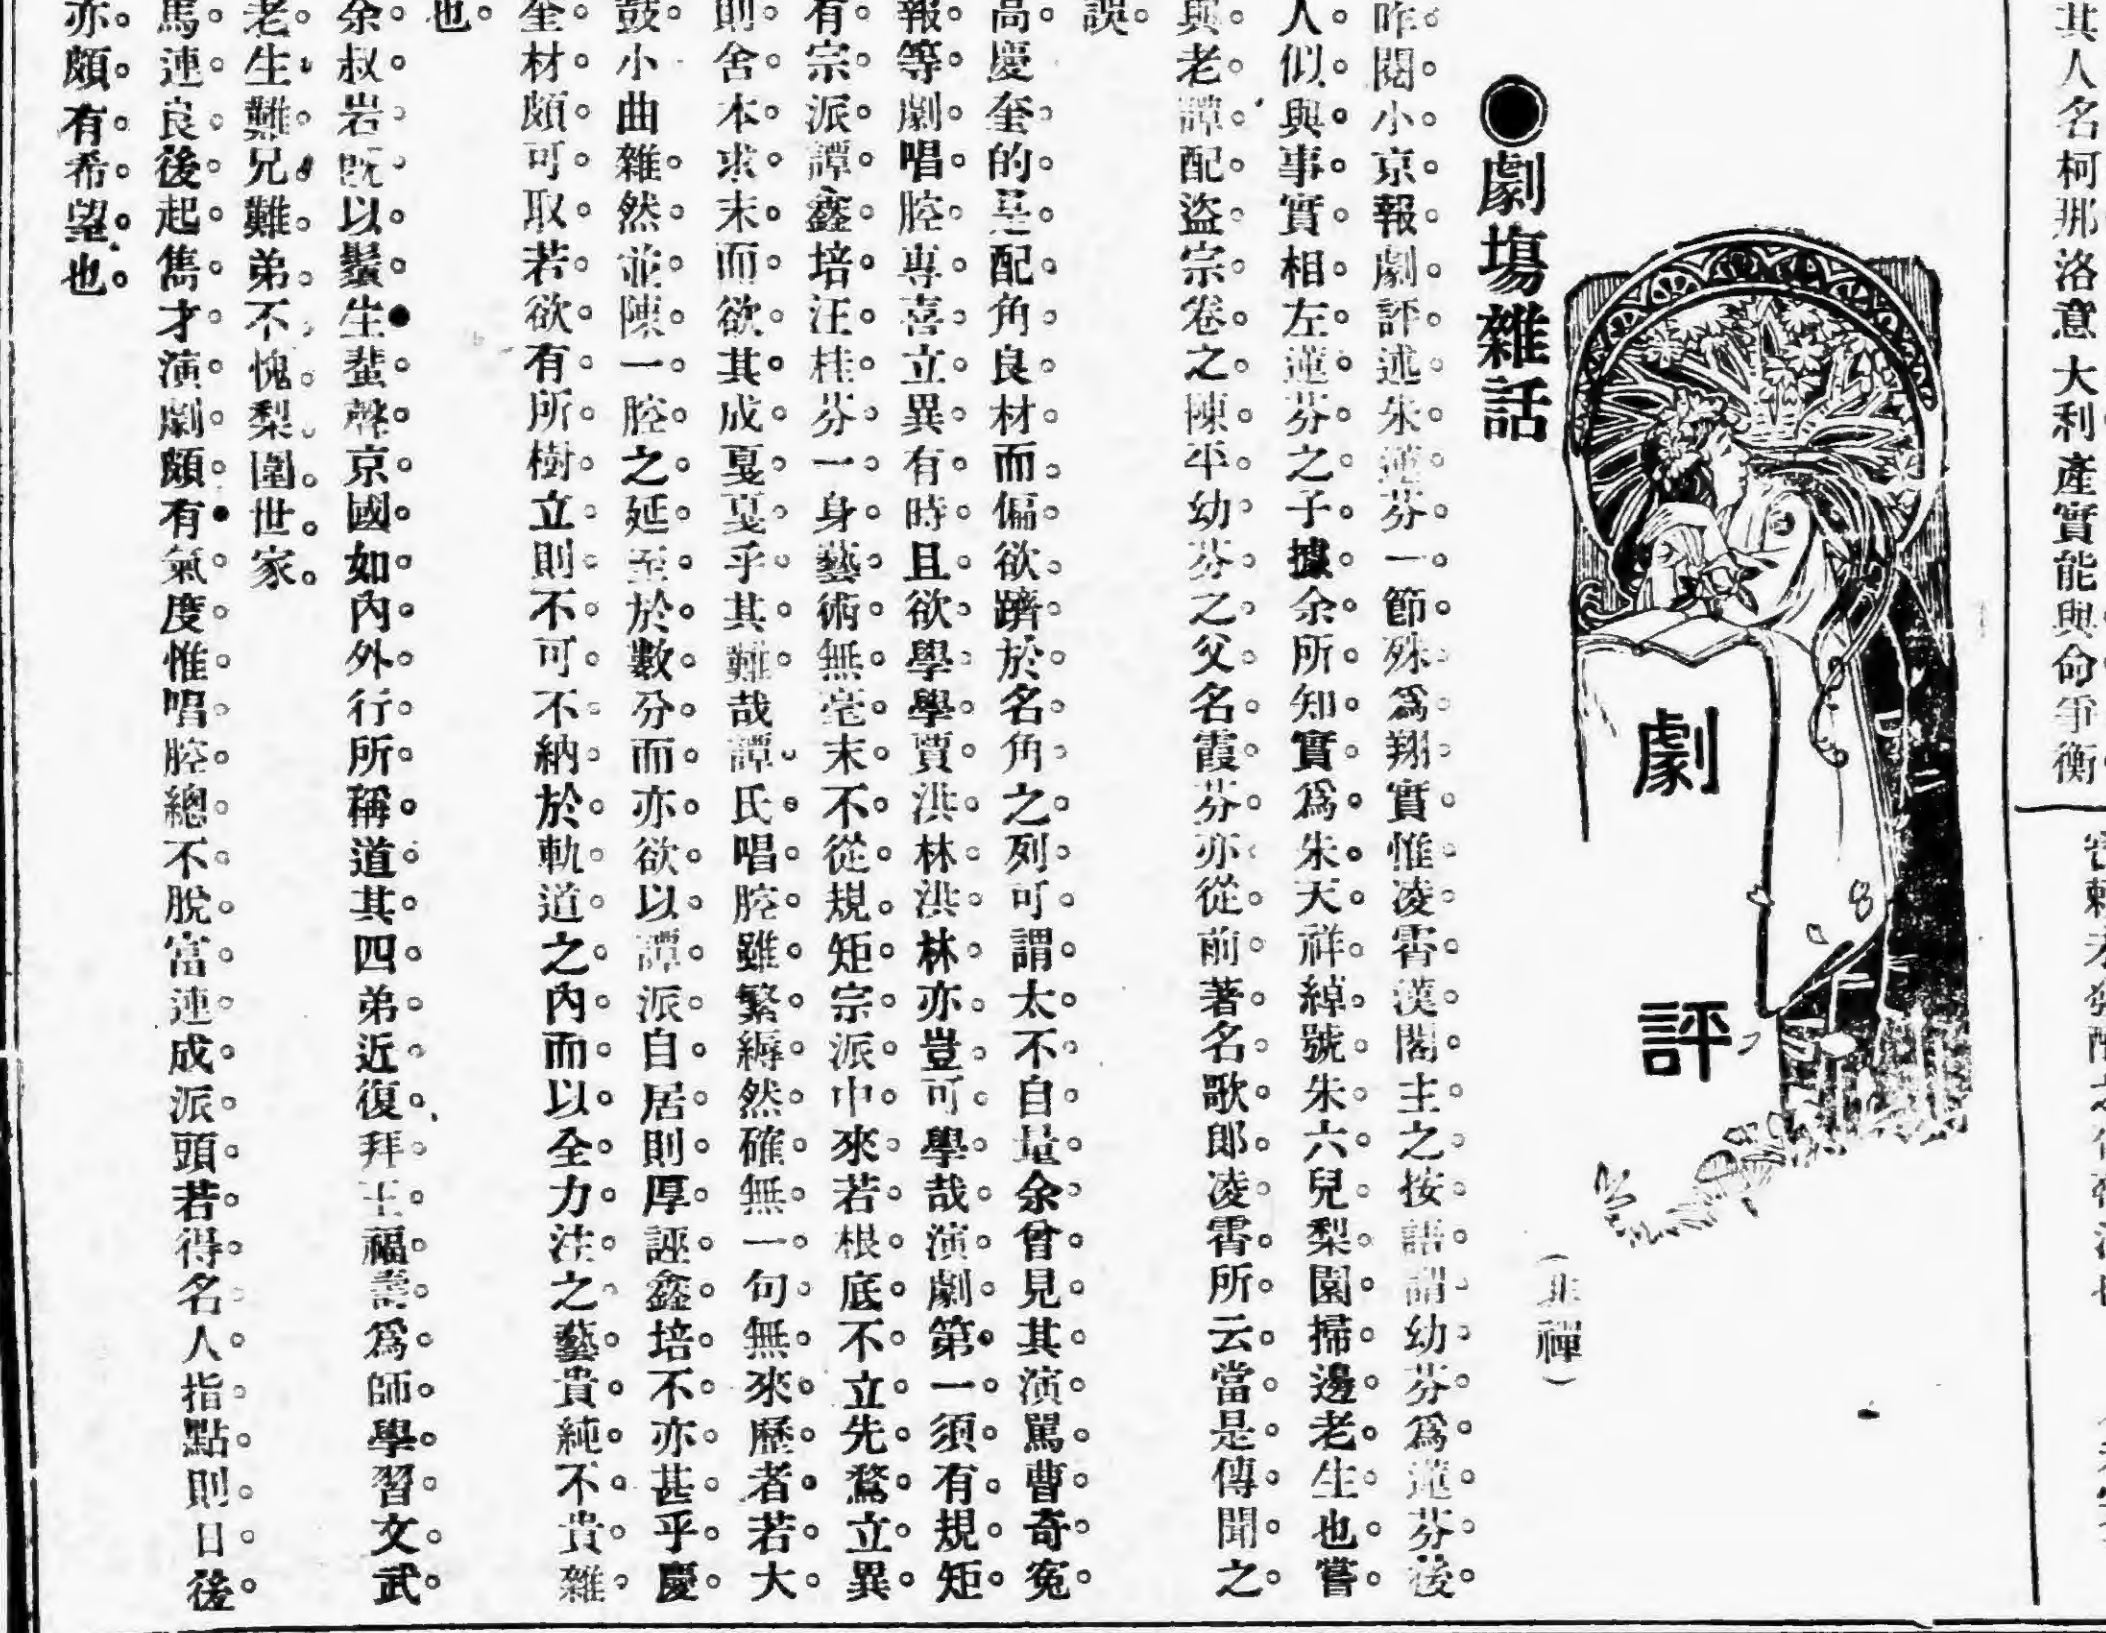 其人名柯那洛意大利產實能與命爭衡
劇評
●劇塲雜話
(非禪)
昨閱小京報劇評述朱蓮芬一節殊爲翔實惟凌霄漢閣主之按語謂幼芬爲蓮芬後
人似與事實相左蓮芬之子據余所知實爲朱天祥綽號朱六兒梨園掃邊老生也嘗
與老譚配盜宗卷之陳平幼芬之父名霞芬亦從前著名歌郎凌霄所云當是傳聞之
誤
高慶奎的是配角良材而偏欲躋於名角之列可謂太不自量余曾見其演罵曹奇冤
報等劇唱腔專喜立異有時且欲學學賈洪林洪林亦豈可學哉演劇第一須有規矩
有宗派譚鑫培汪桂芬一身藝術無毫末不從規矩宗派中來若根底不立先騖立異
則舍本求末而欲其成戛戛乎其難哉譚氏唱腔雖繁縟然確無一句無來歷者若大
鼓小曲雜然並陳一腔之延至於數分而亦欲以譚派自居則厚誣鑫培不亦甚乎慶
奎材頗可取若欲有所樹立則不可不納於軌道之內而以全力注之藝貴純不貴雜
也
余叔岩旣以鬚生蜚聲京國如內外行所稱道其四弟近復拜王福壽爲師學習文武
老生難兄難弟不愧梨園世家
馬連良後起雋才演劇頗有氣度惟唱腔總不脫富連成派頭若得名人指點則日後
亦頗有希望也